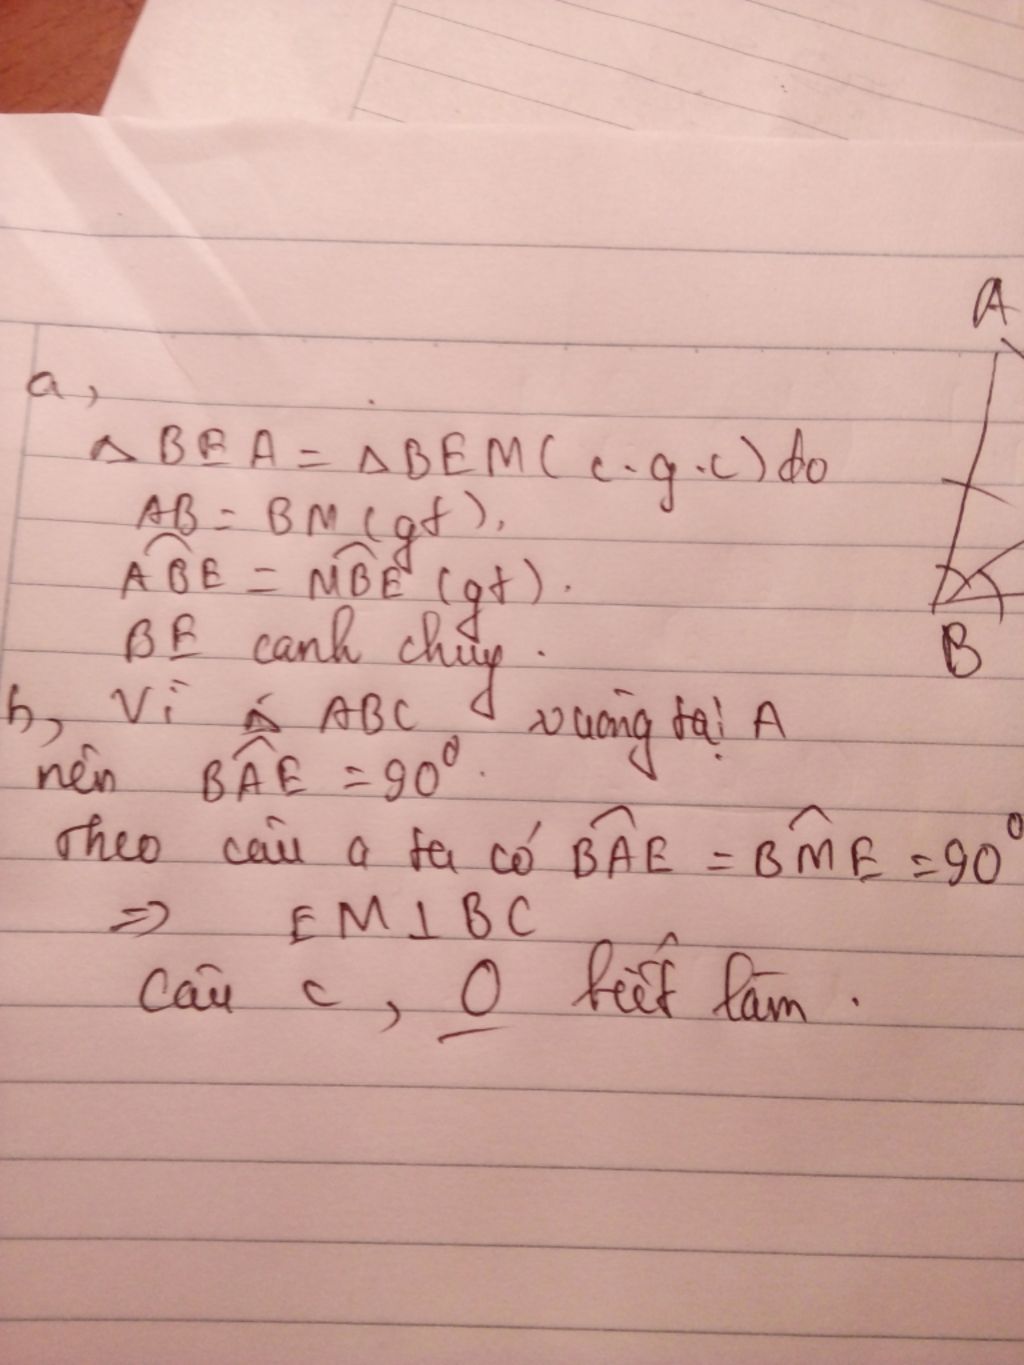 A
a,
△ BEA = △ BEM ( c.g.c) do
AB = BM (gt).
ABE = MBE (gt).
BE canh chung.
B
b, Vì △ ABC vuông tại A
nên BAE = 90⁰.
Theo câu a ta có BAE = BME = 90⁰
=> EM ⊥ BC
Câu c, 0 biết làm.